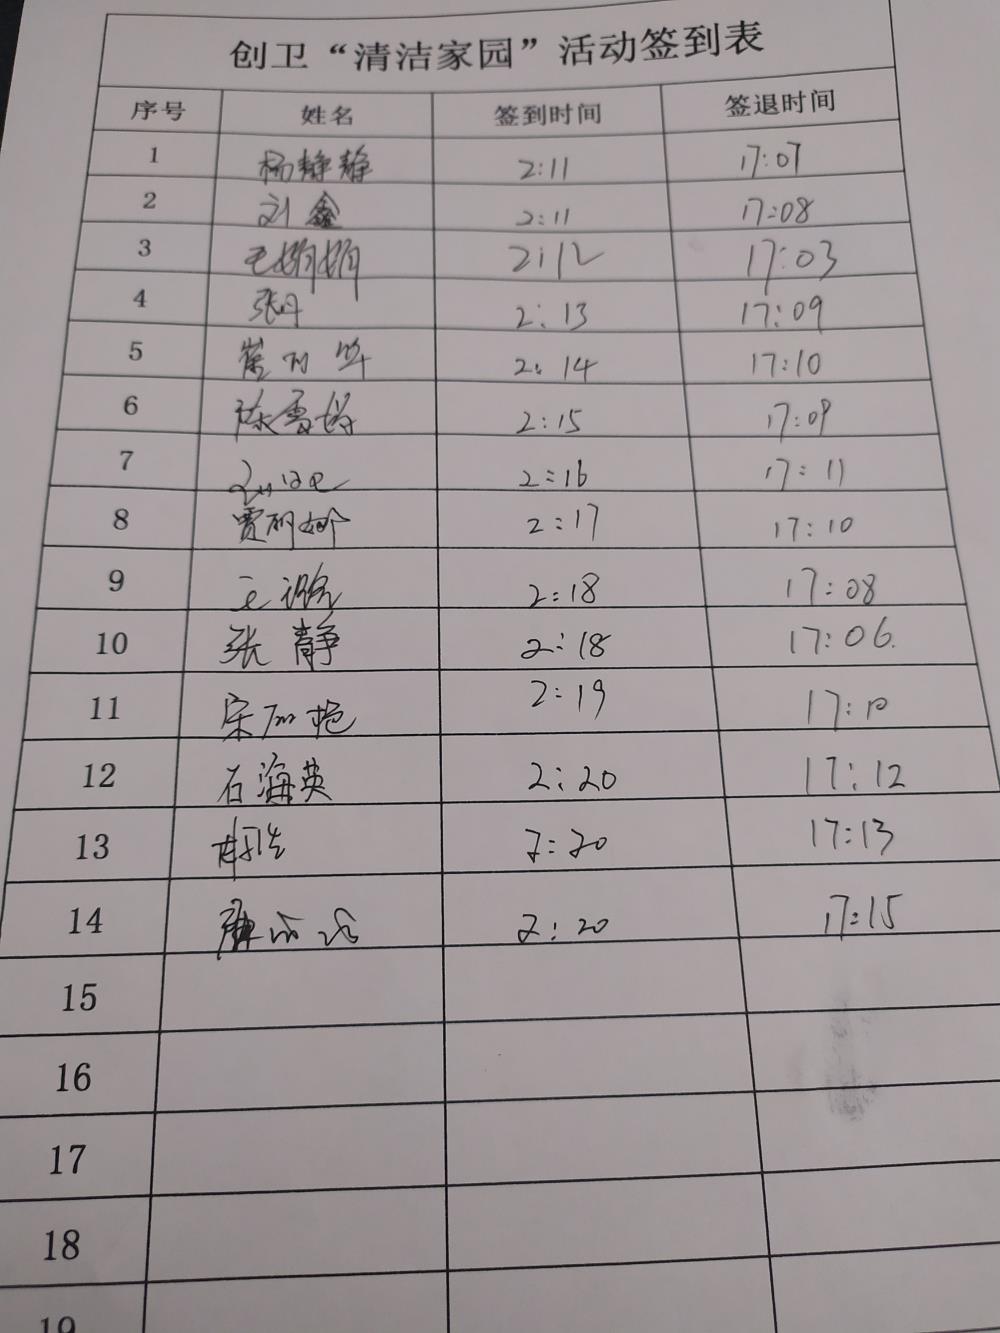 创卫“清洁家园”活动签到表
序号 姓名 签到时间 签退时间
1 杨静静 2:11 17:07
2 刘鑫 2:11 17:08
3 王娟娟 2:12 17:03
4 张丹 2:13 17:09
5 2:14 17:10
6 2:15 17:09
7 2:16 17:11
8 贾丽娜 2:17 17:10
9 王璐 2:18 17:08
10 张静 2:18 17:06.
11 2:19 17:10
12 石海英 2:20 17:12
13 2:20 17:13
14 2:20 17:15
15
16
17
18
19